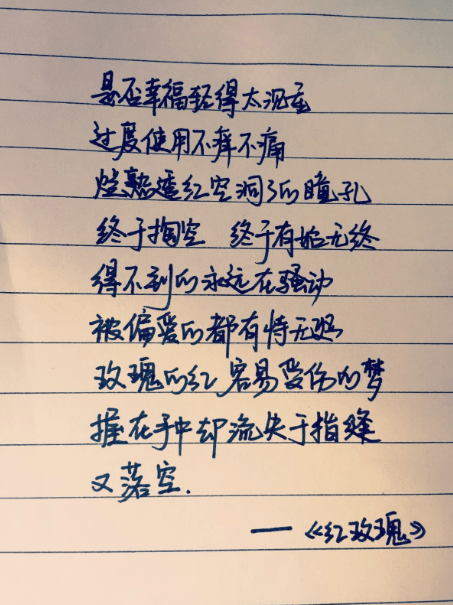 是否幸福轻得太沉重
过度使用不痒不痛
烂熟透红空洞了的瞳孔
终于掏空 终于有始无终
得不到的永远在骚动
被偏爱的都有恃无恐
玫瑰的红 容易受伤的梦
握在手中却流失于指缝
又落空.
——《红玫瑰》